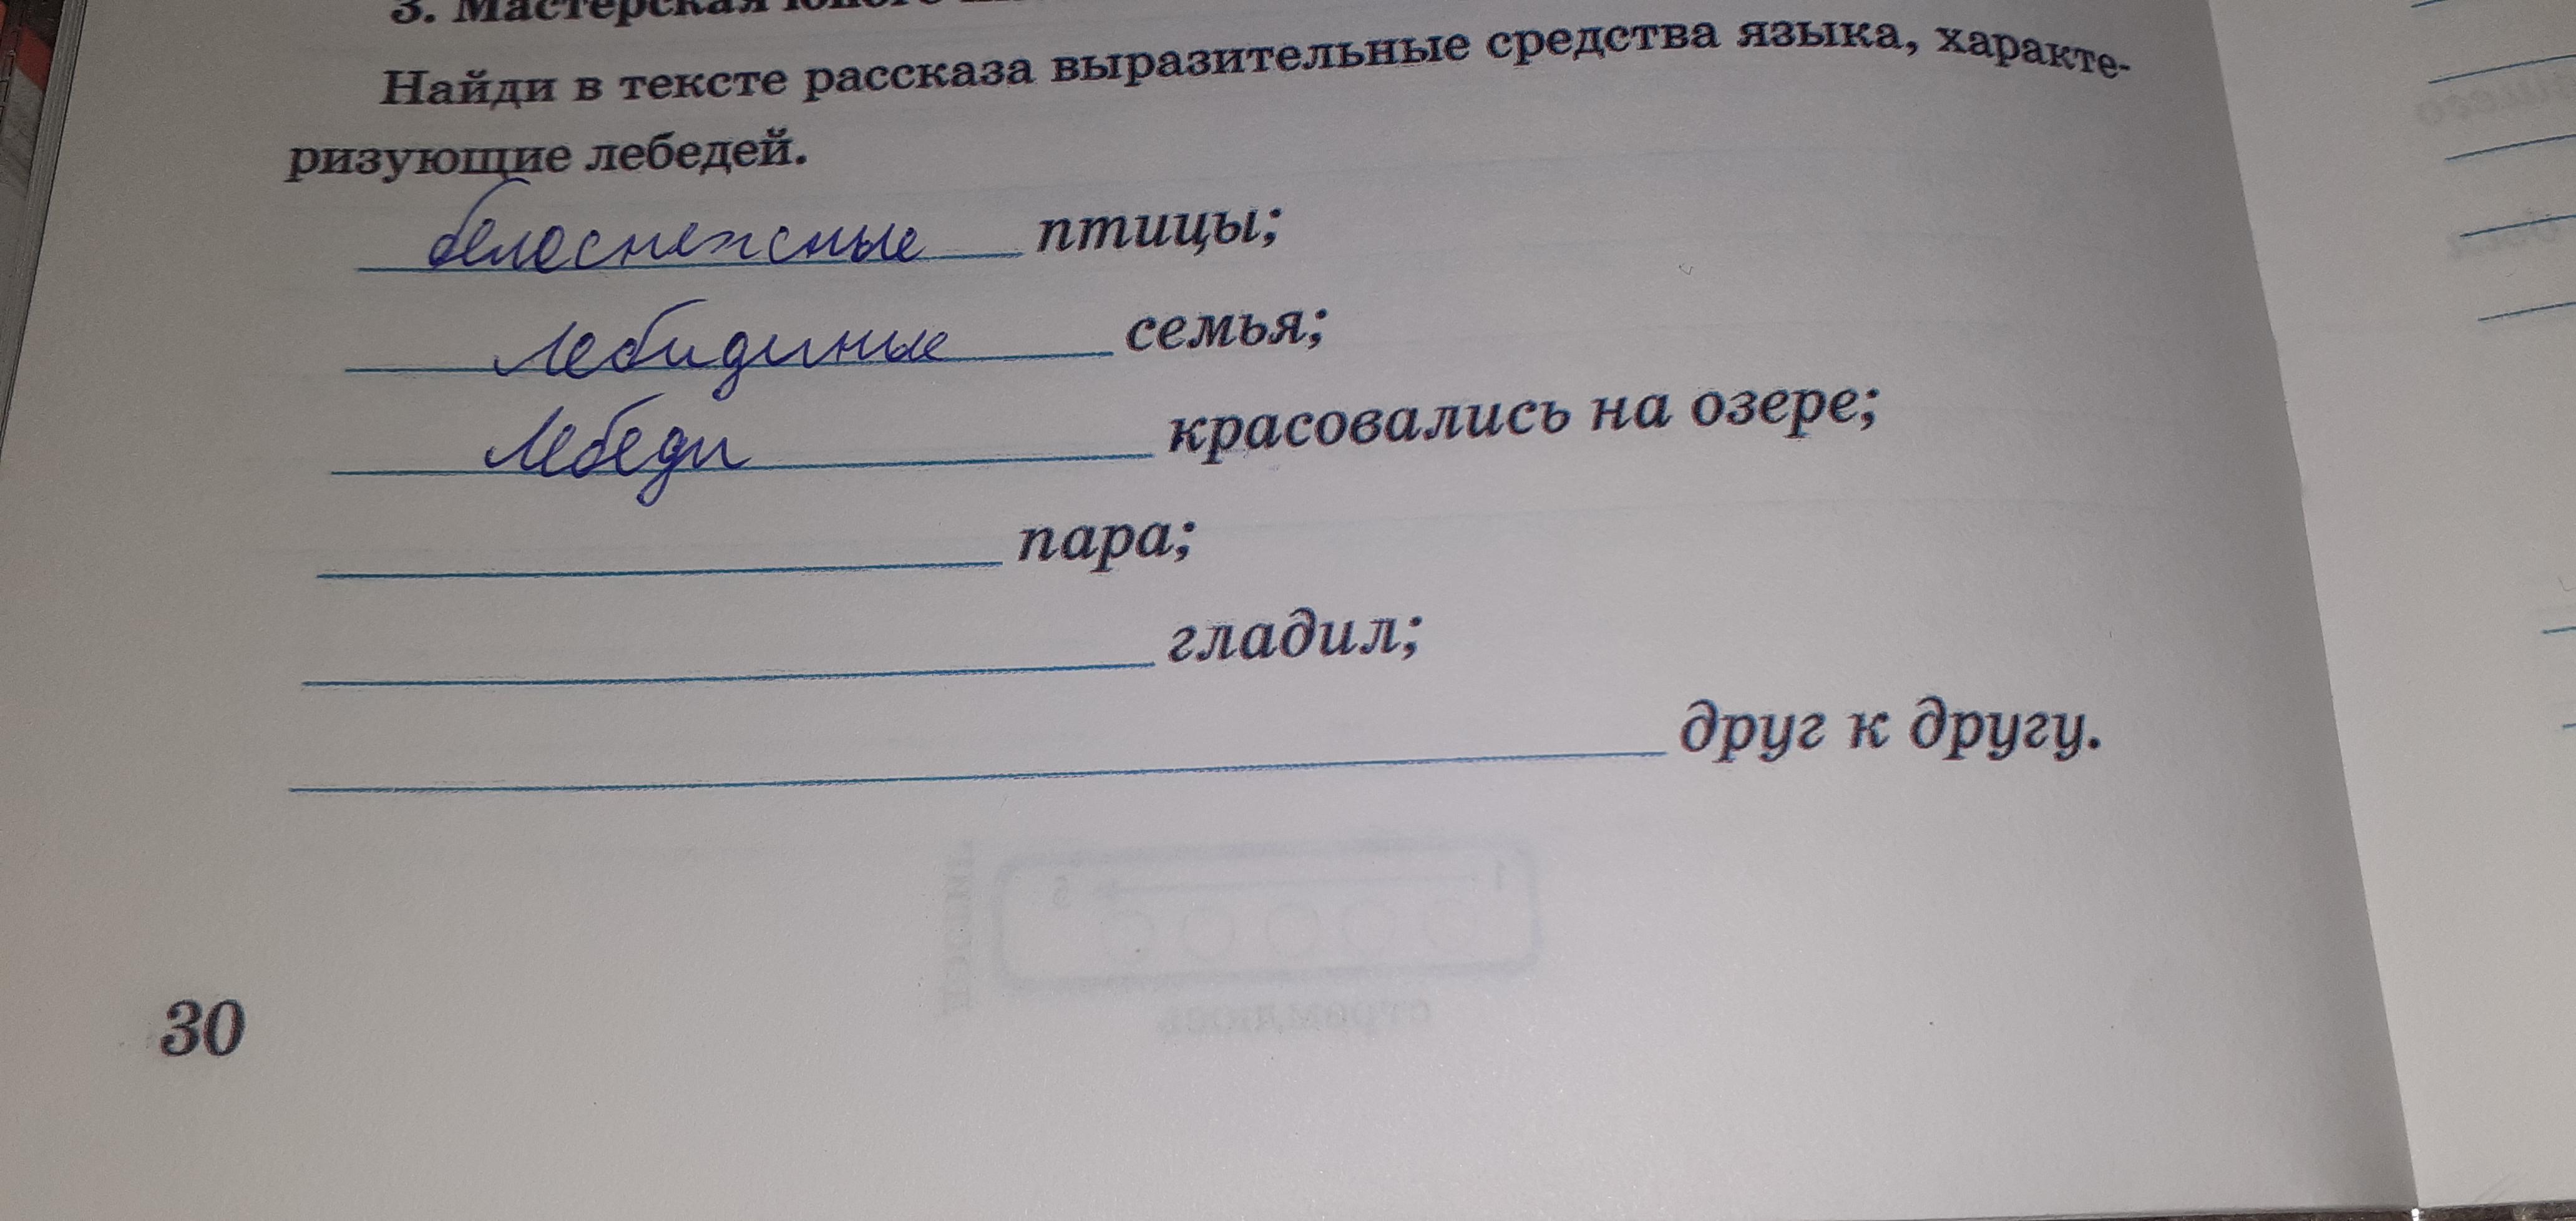 3. Мастерская юного
Найди в тексте рассказа выразительные средства языка, характе-
ризующие лебедей.
белоснежные птицы;
лебидиные семья;
лебеди красовались на озере;
пара;
гладил;
друг к другу.
30